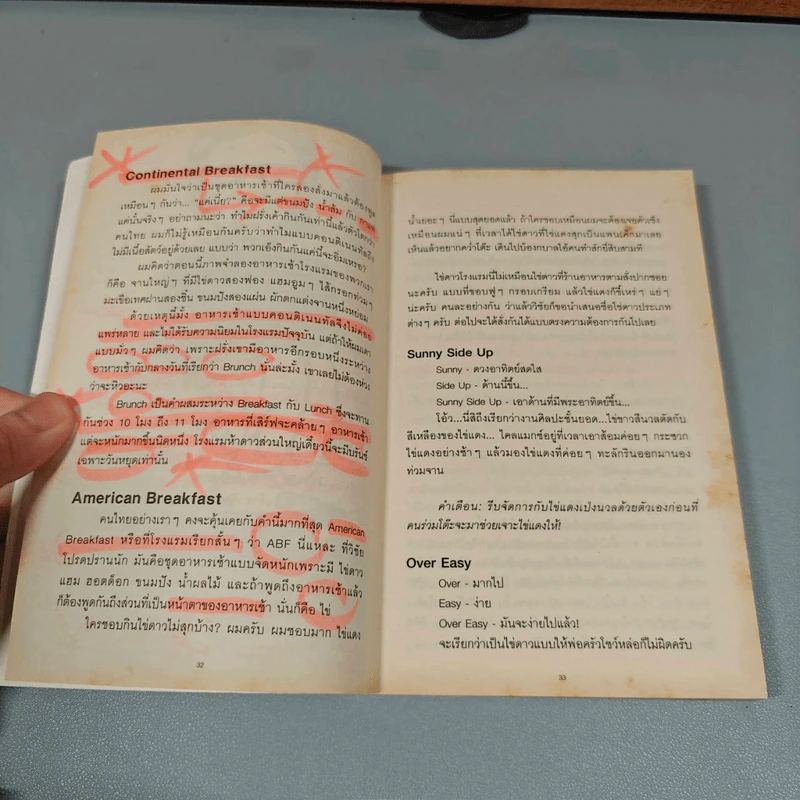 Continental Breakfast
ผมมั่นใจว่าเป็นชุดอาหารเช้าที่ใครลองสั่งมาแล้วต้องพูด
เหมือนๆ กันว่า... "แค่เนี้ย?" คือจะมีแต่ขนมปัง น้ำส้ม กับ กาแฟ
แค่นั้นจริงๆ อย่าถามนะว่า ทำไมฝรั่งเค้ากินกันเท่านี้แล้วตัวโตกว่า
คนไทย ผมก็ไม่รู้เหมือนกันครับว่าทำไมแบบคอนติเนนทัลถึง
ไม่มีเนื้อสัตว์อยู่ด้วยเลย แบบว่า พวกเอ็งกินกันแค่นี้จะอิ่มเหรอ?
ผมคิดว่าตอนนี้ภาพจำลองอาหารเช้าโรงแรมของพวกเรา
ก็คือ จานใหญ่ๆ ที่มีไข่ดาวสองฟอง แฮมอูมๆ ไส้กรอกท่วมๆ
มะเขือเทศผ่านสองชิ้น ขนมปังสองแผ่น ผักตกแต่งจานหนึ่งหย่อม
ด้วยเหตุนี้มั้ง อาหารเช้าแบบคอนติเนนทัลจึงไม่ค่อย
แพร่หลาย และไม่ได้รับความนิยมในโรงแรมปัจจุบัน แต่ถ้าให้ผมเดา
แบบมั่วๆ ผมคิดว่า เพราะฝรั่งเขามีอาหารอีกรอบหนึ่งระหว่าง
อาหารเช้ากับกลางวันที่เรียกว่า Brunch นั่นละมั้ง เขาเลยไม่ต้องห่วง
ว่าจะหิวอะนะ
Brunch เป็นคำผสมระหว่าง Breakfast กับ Lunch ซึ่งจะทาน
กันช่วง 10 โมง ถึง 11 โมง อาหารที่เสิร์ฟจะคล้ายๆ อาหารเช้า
แต่จะหนักมากขึ้นนิดหนึ่ง โรงแรมห้าดาวส่วนใหญ่เดี๋ยวนี้จะมีบรันช์
เฉพาะวันหยุดเท่านั้น
American Breakfast
คนไทยอย่างเราๆ คงจะคุ้นเคยกับคำนี้มากที่สุด American
Breakfast หรือที่โรงแรมเรียกสั้นๆ ว่า ABF นี่แหละ ที่วิชัย
โปรดปรานนัก มันคือชุดอาหารเช้าแบบจัดหนักเพราะมี ไข่ดาว
แฮม ฮอตด็อก ขนมปัง น้ำผลไม้ และถ้าพูดถึงอาหารเช้าแล้ว
ก็ต้องพูดกันถึงส่วนที่เป็นหน้าตาของอาหารเช้า นั่นก็คือ ไข่
ใครชอบกินไข่ดาวไม่สุกบ้าง? ผมครับ ผมชอบมาก ไข่แดง
32
น้ำเยอะๆ นี่แบบสุดยอดแล้ว ถ้าใครชอบเหมือนผมจะต้องเจอตัวเซ็ง
เหมือนผมแน่ๆ ที่เวลาได้ไข่ดาวที่ไข่แดงสุกเป็นแพนเค้กมาเลย
เห็นแล้วอยากคว่ำโต๊ะ เดินไปป้องกบาลไอ้คนทำสักยี่สิบสามที
ไข่ดาวโรงแรมนี่ไม่เหมือนไข่ดาวที่ร้านอาหารตามสั่งปากซอย
นะครับ แบบที่ขอบฟูๆ กรอบเกรียม แล้วไข่แดงก็ขี้เหร่ๆ แย่ๆ
น่ะครับ คนละอย่างกัน ว่าแล้ววิชัยก็ขอนำเสนอชื่อไข่ดาวประเภท
ต่างๆ ครับ ต่อไปจะได้สั่งกันได้แบบตรงความต้องการกันไปเลย
Sunny Side Up
Sunny - ดวงอาทิตย์สดใส
Side Up - ด้านนี้ขึ้น...
Sunny Side Up - เอาด้านที่มีพระอาทิตย์ขึ้น...
โอ้ว...นี่สิถึงเรียกว่างานศิลปะชั้นยอด...ไข่ขาวสีนวลตัดกับ
สีเหลืองของไข่แดง... ไคลแมกซ์อยู่ที่เวลาเอาส้อมค่อยๆ กระซวก
ไข่แดงอย่างช้าๆ แล้วมองไข่แดงที่ค่อยๆ ทะลักรินออกมานอง
ท่วมจาน
คำเตือน: รีบจัดการกับไข่แดงเปล่งนวลด้วยตัวเองก่อนที่
คนร่วมโต๊ะจะมาช่วยเจาะไข่แดงให้!
Over Easy
Over - มากไป
Easy - ง่าย
Over Easy - มันจะง่ายไปแล้ว!
จะเรียกว่าเป็นไข่ดาวแบบให้พ่อครัวโชว์หล่อก็ไม่ผิดครับ
33